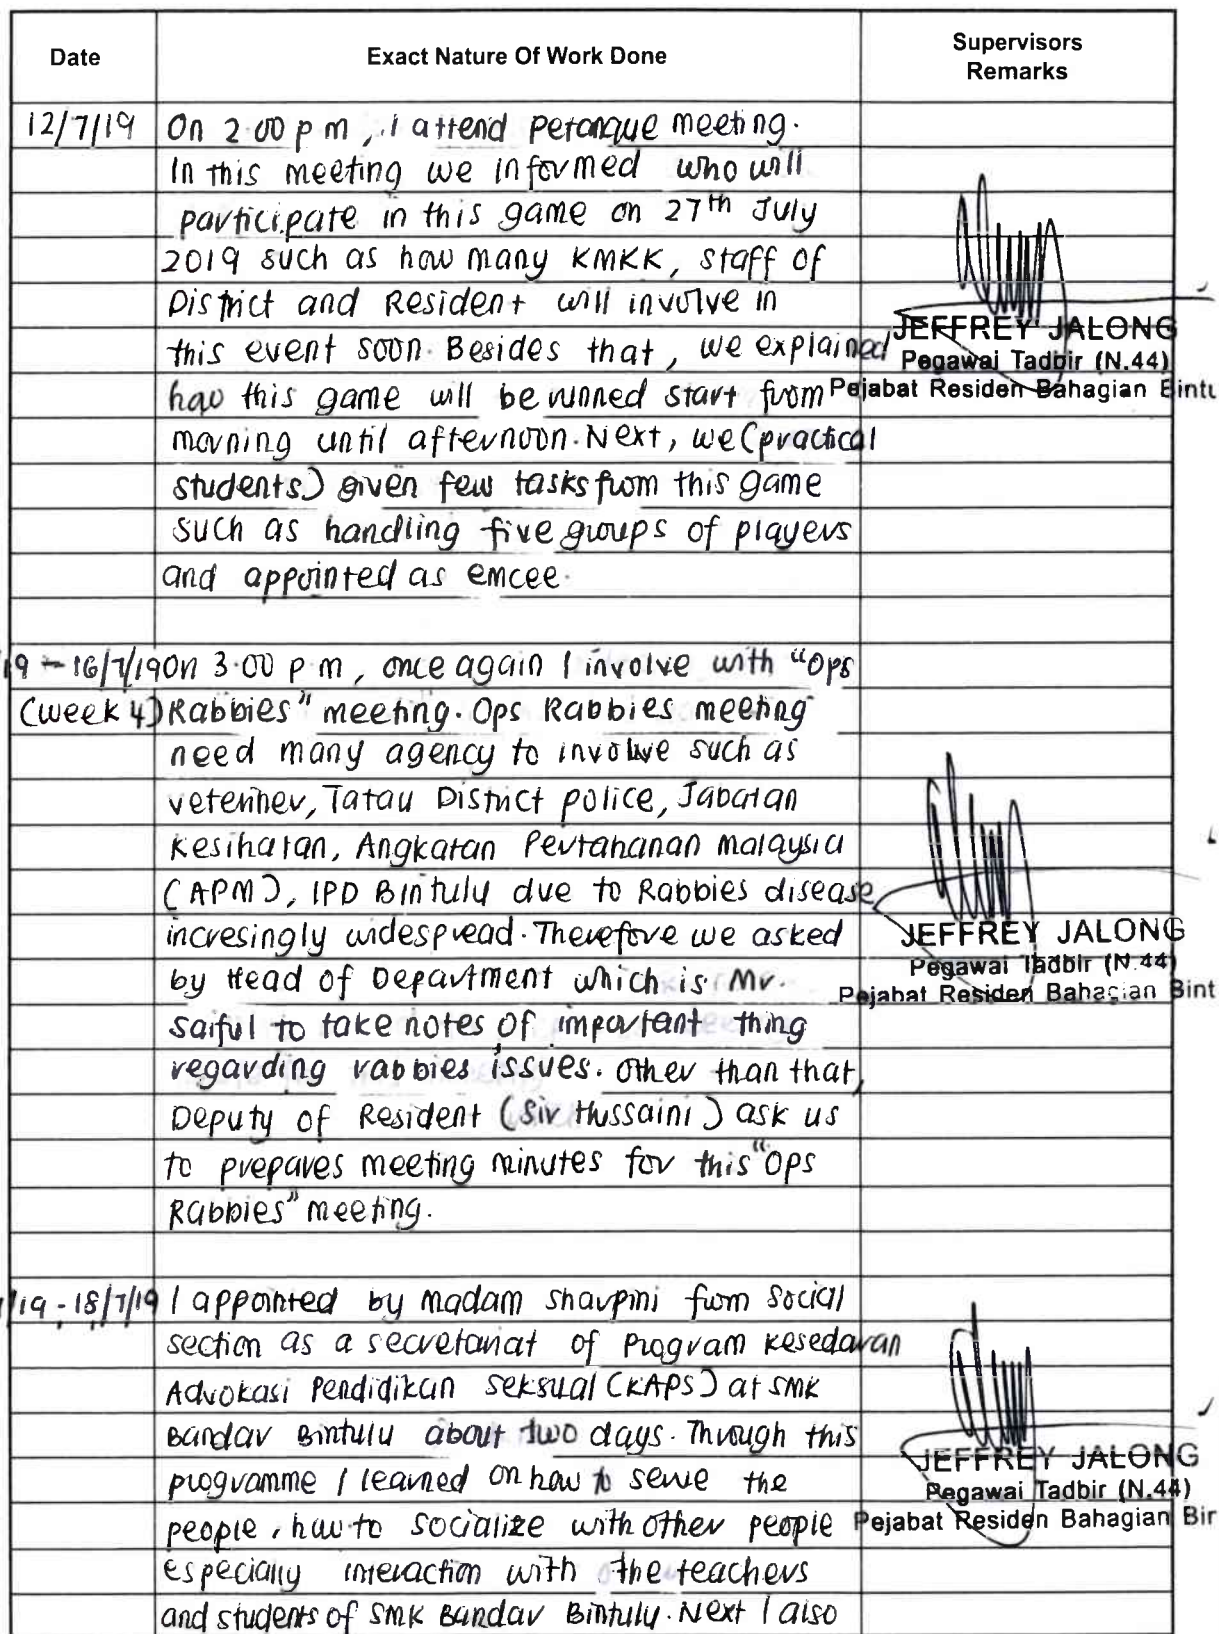 Date Exact Nature Of Work Done Supervisors Remarks
12/7/19 On 2.00 p m, I attend Petanque meeting.
In this meeting we informed who will
participate in this game on 27th July
2019 such as how many KMKK, staff of
District and Resident will involve in
this event soon. Besides that, we explained
how this game will be runned start from
morning until afternoon. Next, we (practical
students) given few tasks from this game
such as handling five groups of players
and appointed as emcee.
JEFFREY JALONG
Pegawai Tadbir (N.44)
Pejabat Residen Bahagian Bintu
/19 - 16/7/19 On 3.00 p m, once again I involve with "Ops
(week 4) Rabbies" meeting. Ops Rabbies meeting
need many agency to involve such as
veteriner, Tatau District police, Jabatan
Kesihatan, Angkatan Pertahanan Malaysia
(APM), IPD Bintulu due to Rabbies disease
incresingly widespread. Therefore we asked
by Head of Department which is Mr.
Saiful to take notes of important thing
regarding rabbies issues. Other than that,
Deputy of Resident (Sir Hussaini) ask us
to prepares meeting minutes for this "Ops
Rabbies" meeting.
JEFFREY JALONG
Pegawai Tadbir (N.44)
Pejabat Residen Bahagian Bint
/19 - 18/7/19 I appointed by Madam Sharpini from Social
section as a secretariat of Program Kesedaran
Advokasi Pendidikan Seksual (KAPS) at SMK
Bandar Bintulu about two days. Through this
programme I learned on how to serve the
people, how to socialize with other people
especially interaction with the teachers
and students of SMK Bandar Bintulu. Next I also
JEFFREY JALONG
Pegawai Tadbir (N.44)
Pejabat Residen Bahagian Bin